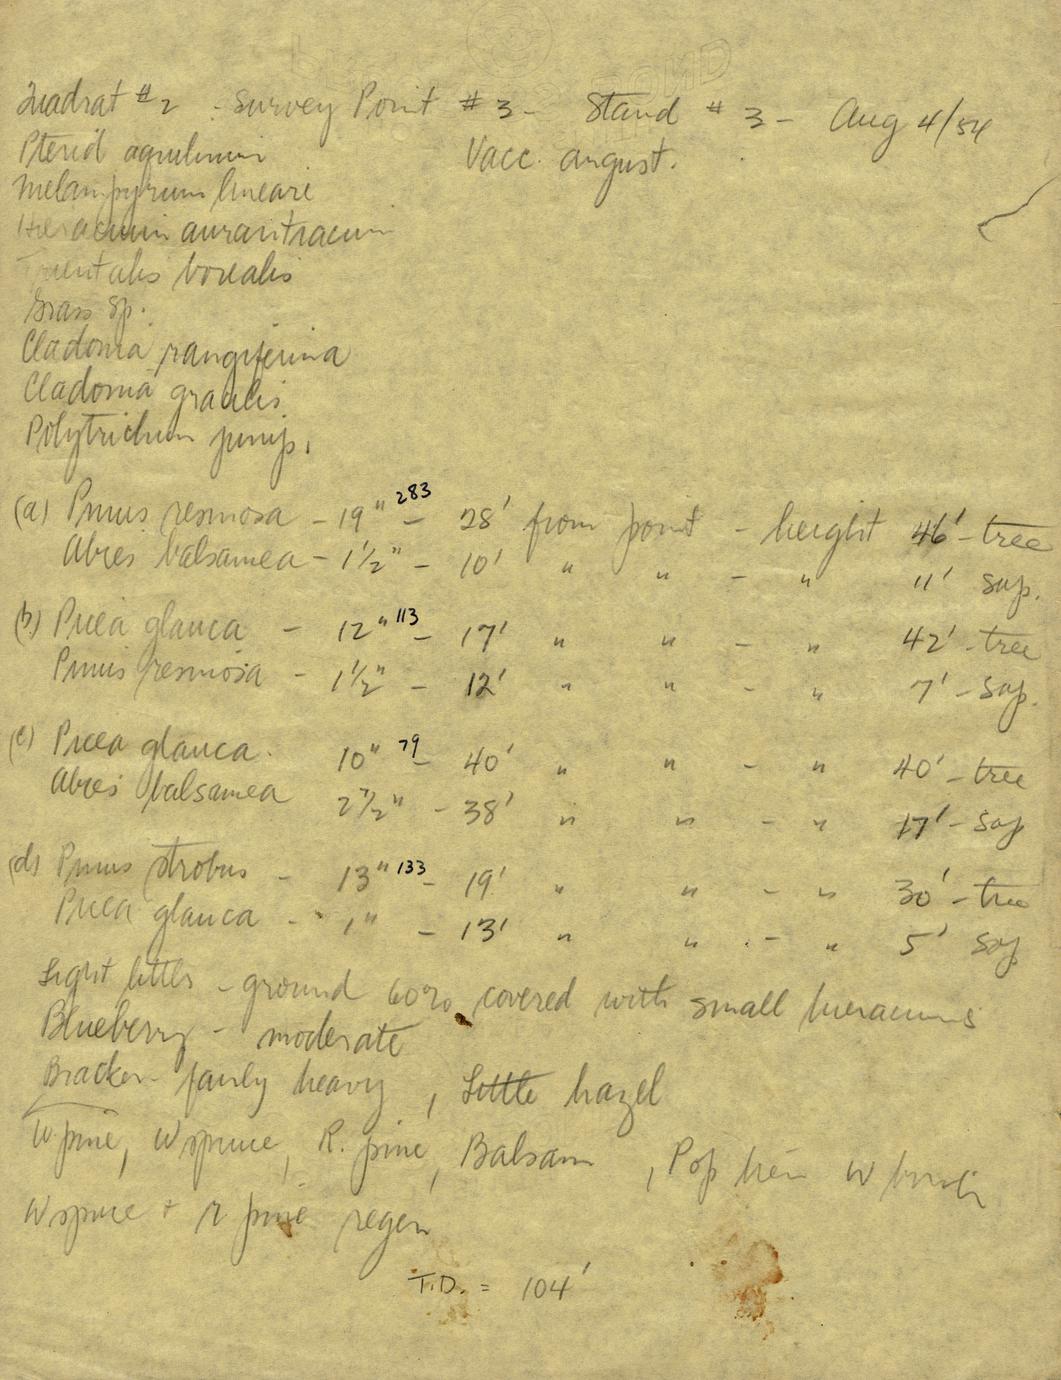 Quadrat #2 - Survey Point #3 - Stand #3 - Aug 4/54
Pterid aquilinum Vacc. angust.
Melampyrum lineare
Hieracium aurantiacum
Trientalis borealis
Grass sp.
Cladonia rangiferina
Cladonia gracilis
Polytrichum junip.
(a) Pinus resinosa - 19" 283 - 28' from point - height 46' - tree
Abies balsamea - 1 1/2" - 10' " " - " 11' sap.
(b) Picea glauca - 12" 113 - 17' " " - " 42' - tree
Pinus resinosa - 1 1/2" - 12' " " - " 7' - sap.
(c) Picea glauca. 10" 79 - 40' " " - " 40' - tree
Abies balsamea 2 1/2" - 38' " " - " 17' - sap
(d) Pinus strobus - 13" 133 - 19' " " - " 30' - tree
Picea glauca - 1" - 13' " " - " 5' sap
Light litter - ground 60% covered with small hieraciums
Blueberry - moderate
Bracken - fairly heavy, Little hazel
W pine, W spruce, R. pine, Balsam, Pop trem W birch
W spruce + r pine regen
T.D. = 104'